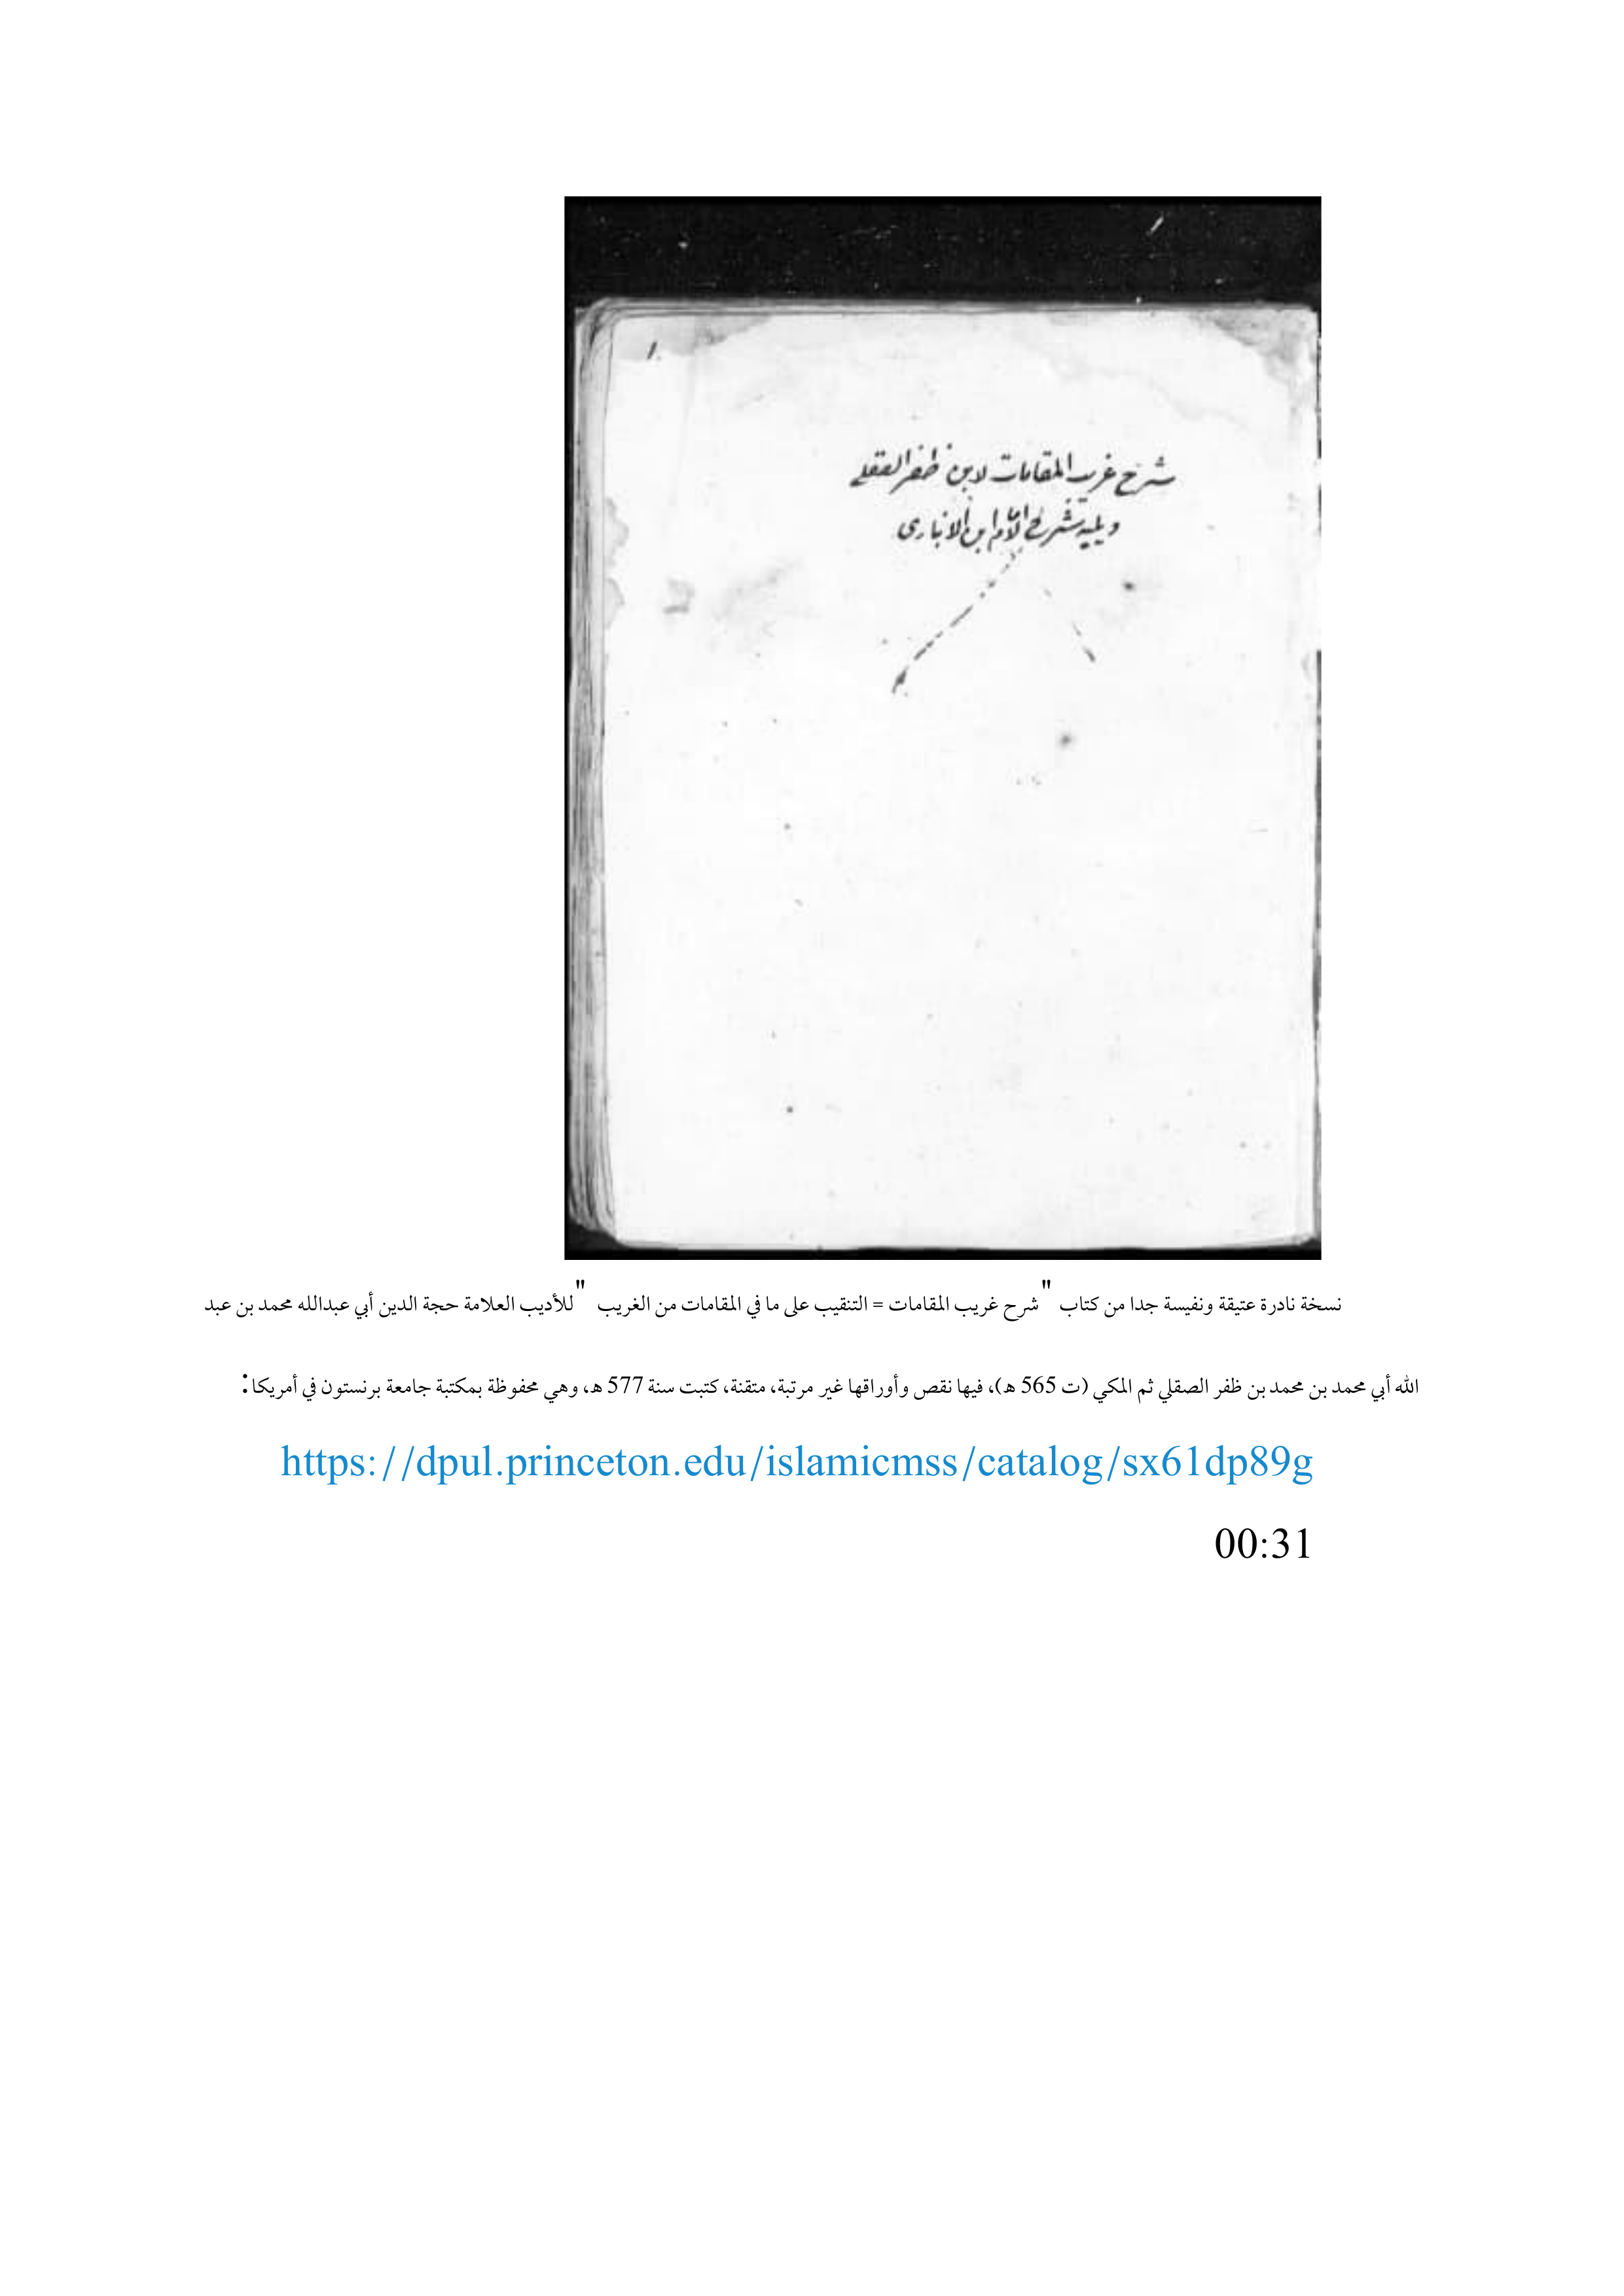 ١
شرح غريب المقامات لابن ظفر الصقلي
ويليه شرح الامام ابن الانباري
نسخة نادرة عتيقة ونفيسة جدا من كتاب "شرح غريب المقامات = التنقيب على ما في المقامات من الغريب" للأديب العلامة حجة الدين أبي عبدالله محمد بن عبد
الله أبي محمد بن محمد بن ظفر الصقلي ثم المكي (ت 565 هـ)، فيها نقص وأوراقها غير مرتبة، متقنة، كتبت سنة 577 هـ، وهي محفوظة بمكتبة جامعة برنستون في أمريكا:
https://dpul.princeton.edu/islamicmss/catalog/sx61dp89g
00:31